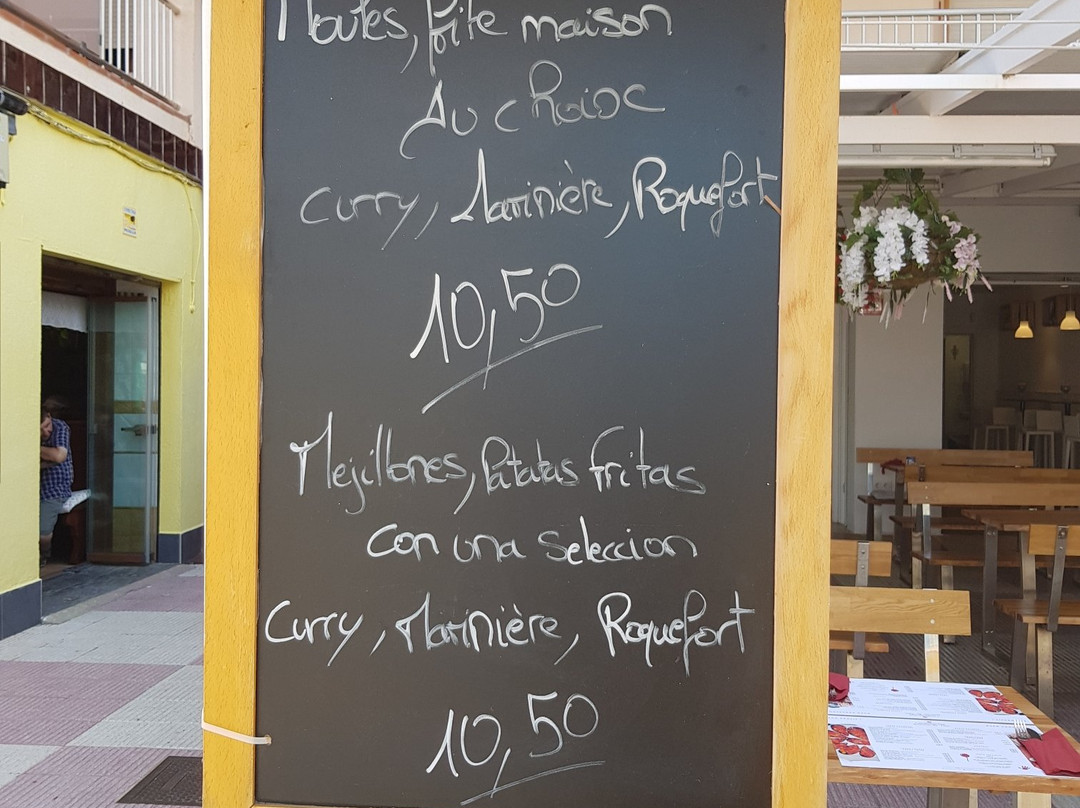 Moules, frite maison
Au choix
Curry, Marinière, Roquefort
10,50
Mejillones, Patatas Fritas
con una seleccion
Curry, Marinière, Roquefort
10,50